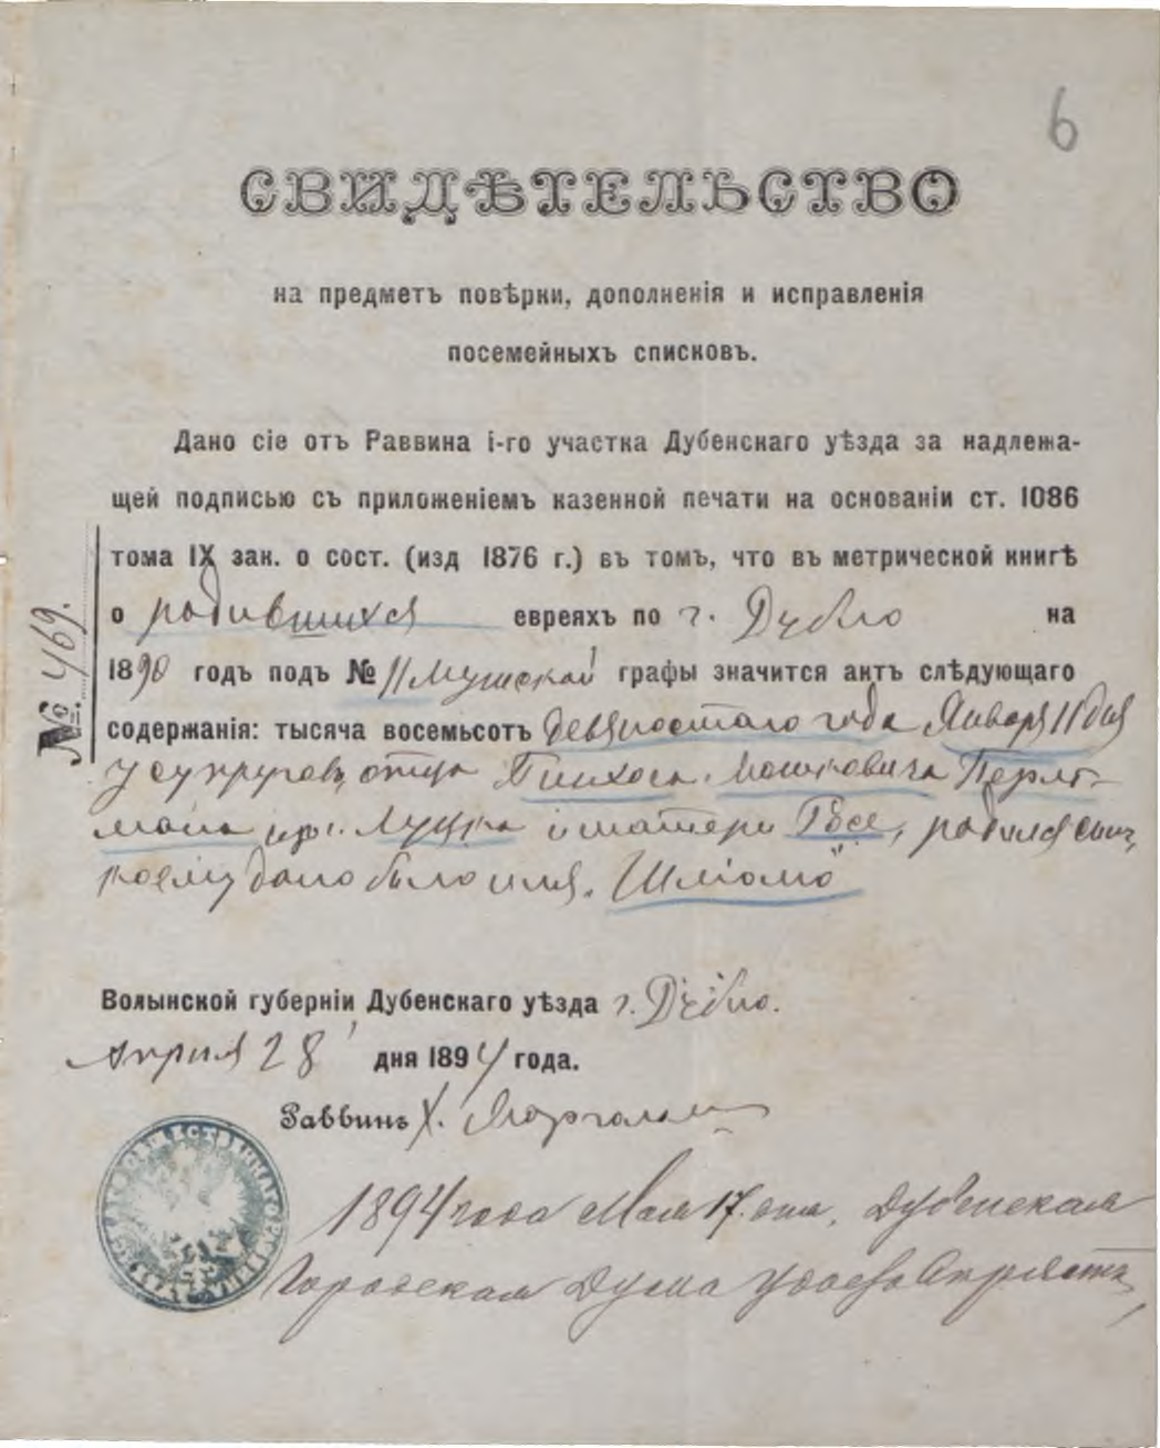 6
СВИДѢТЕЛЬСТВО
на предметъ повѣрки, дополненія и исправленія
посемейныхъ списковъ.
Дано сіе отъ Раввина і-го участка Дубенскаго уѣзда за надлежа-
щей подписью съ приложеніемъ казенной печати на основаніи ст. 1086
тома IX зак. о сост. (изд 1876 г.) въ томъ, что въ метрической книгѣ
о родившихся евреяхъ по г. Дубно на
1890 годъ подъ № 11 мужской графы значится актъ слѣдующаго
содержанія: тысяча восемьсотъ девяностаго года Января 11 дня
у супруговъ, отца Пинхоса Мошковича Перль-
мана изъ г. Луцка и матери Рѣсе, родился сынъ,
коему дано было имя „Шліомо"
Волынской губерніи Дубенскаго уѣзда г. Дубно.
Апрѣля 28 дня 1894 года.
Раввинъ Х. Маргалит
1894 года Мая 17 дня. Дубенская
Городская Дума
№ 469.